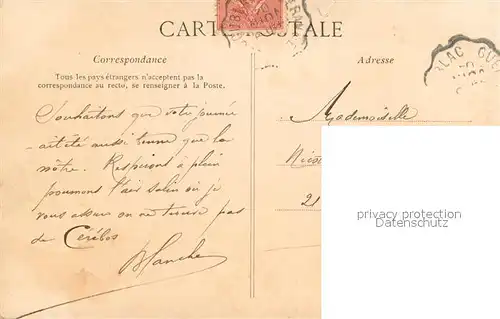 CARTE POSTALE
Correspondance
Tous les pays étrangers n'acceptent pas la
correspondance au recto, se renseigner à la Poste.
Souhaitons que votre journée
ait été aussi bonne que la
nôtre. Respirons à plein
poumons l'air salin où je
vous assure on ne trouve pas
de Cérébos
Blanche
Adresse
Mademoiselle
21
BLAC GUÉR
privacy protection
Datenschutz